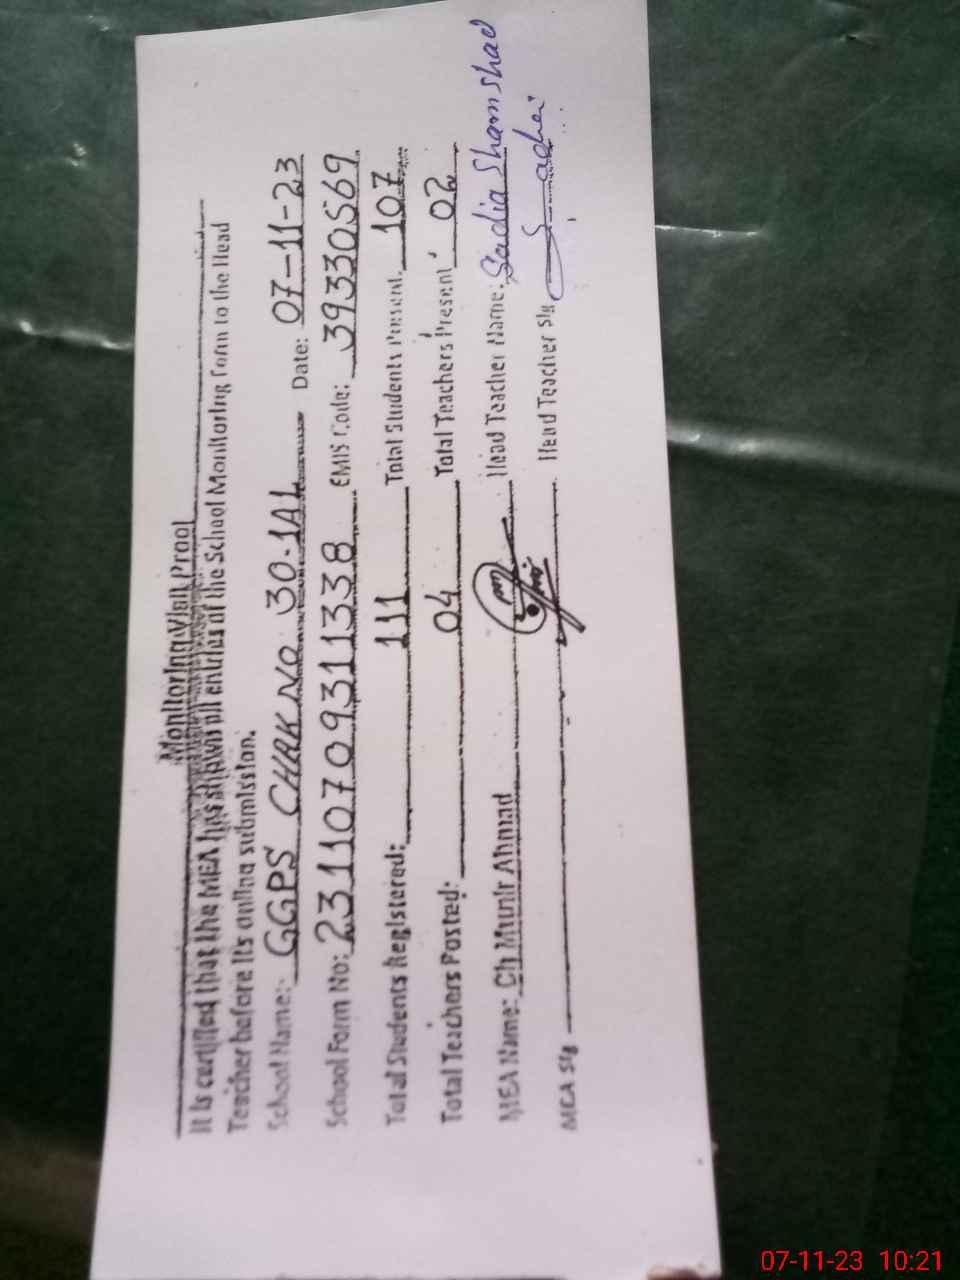 Monitoring Visit Proof
It is certified that the MEA has shown all entries of the School Monitoring Form to the Head
Teacher before its online submission.
School Name:- GGPS CHAK NO 30-1AL Date: 07-11-23
School Form No: 23110709311338 EMIS Code: 39330569
Total Students Registered: 111 Total Students Present. 107
Total Teachers Posted: 04 Total Teachers Present 02
MEA Name: Ch Munir Ahmad Head Teacher Name: Sadia Shamshad
MEA Sig Head Teacher Sig Sadia
07-11-23 10:21